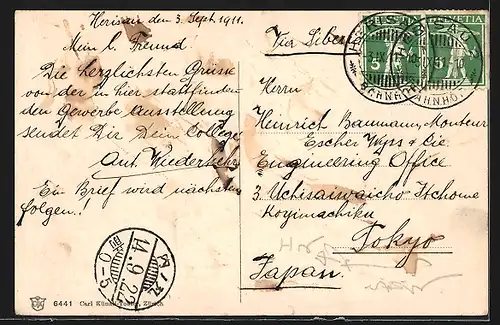 Herisau den 3. Sept. 1911.
Mein l. Freund
Die herzlichsten Grüsse
von der in hier stattfinden
den Gewerbe Ausstellung
sendet Dir Dein College
Ant. Wiederkehr
Ein Brief wird nächstens
folgen!
Via Siberia
HELVETIA
5
5
HERISAU
BAHNHOF
HERISAU
BAHNHOF
Herrn
Heinrich Baumann, Monteur
Escher Wyss & Cie
Engineering Office
3. Uchisaiwaicho-Itchome
Kojimachiku
Tokyo
Japan.
14.9.22
0-5
6441 Carl Künzli-Tobler, Zürich